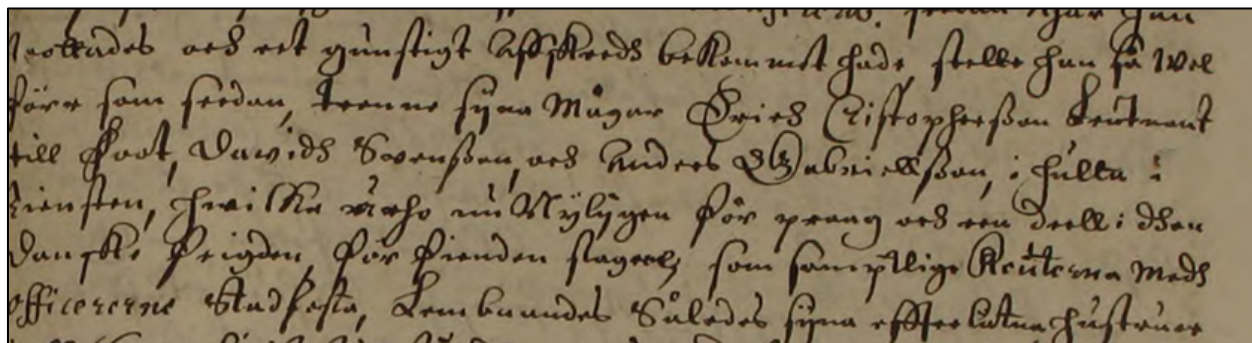 och ett gunstigt Affskeedh bekommet hade, stelle han så wel
förr som seedan, trenne syna Mågar Erich Cristophersson Leutnant
till Foot, Dawidh Swensson, och Anders Gabrielsson, i fulla i
tiensten, hwilka nu Nyligen för praag och een deell i dhen
Danske feigden för fienden slagne, som samptlige Reuterna medh
officererne Stadfesta, Lembnandes Således syna effterlatna hustruer